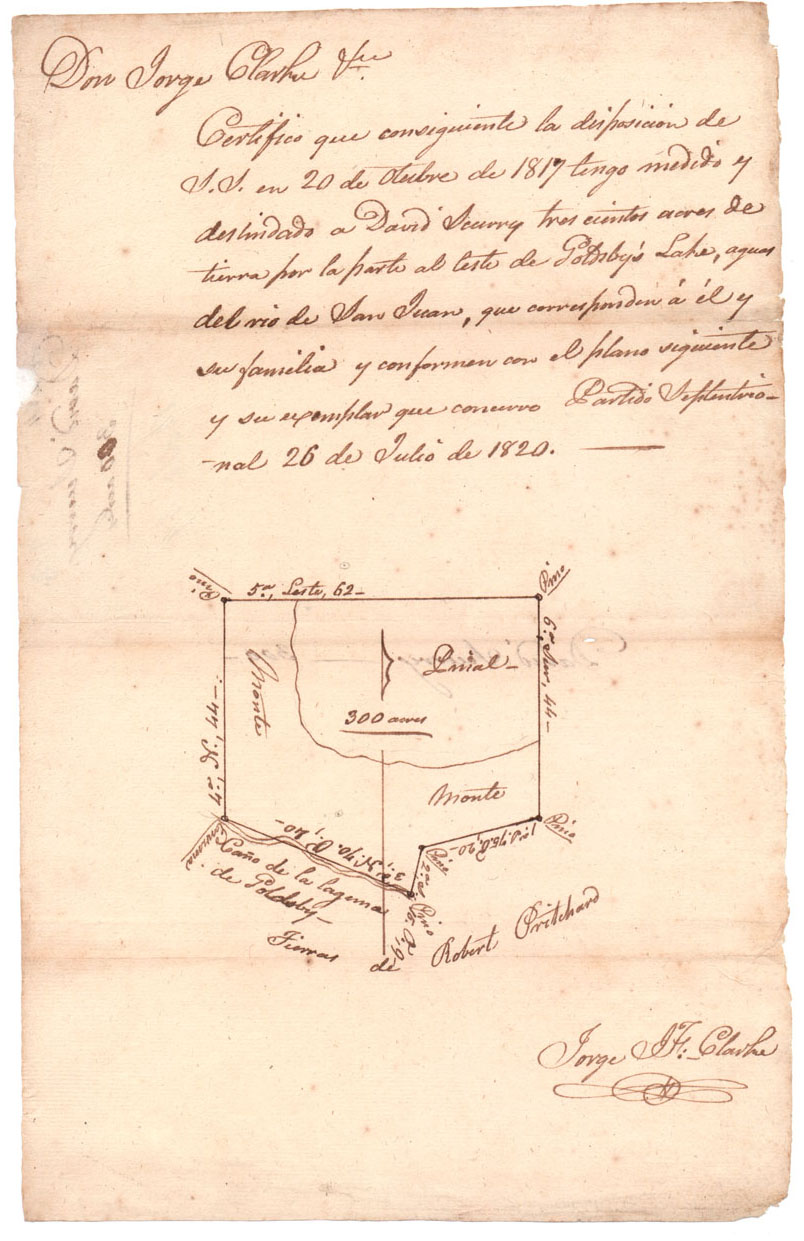 Don Jorge Clarke &ce.
Certifico que consiguiente la disposición de
S. S. en 20 de Otubre de 1817 tengo medido y
deslindado a David Scurry tres cientos acres de
tierra por la parte al leste de Goldsby's Lake, aguas
del rio de San Juan, que corresponden á él y
su familia y conformen con el plano siguiente
y su exemplar que concurro Partido Septentrio-
-nal 26 de Julio de 1820.
Pino
5a., Leste, 62-
Pino
6a. Sur, 44-
Monte
Pinal-
300 acres
4a., N., 44-
Monte
Pino
1a. S. 75. O. 20-
Pino
2a. S. 15. O. 9-
Pino
3a. N. 70. O. 40-
Caño de la laguna
de Goldsby-
Tierras
de Robert Pritchard
Jorge J. F: Clarke
David Scurry